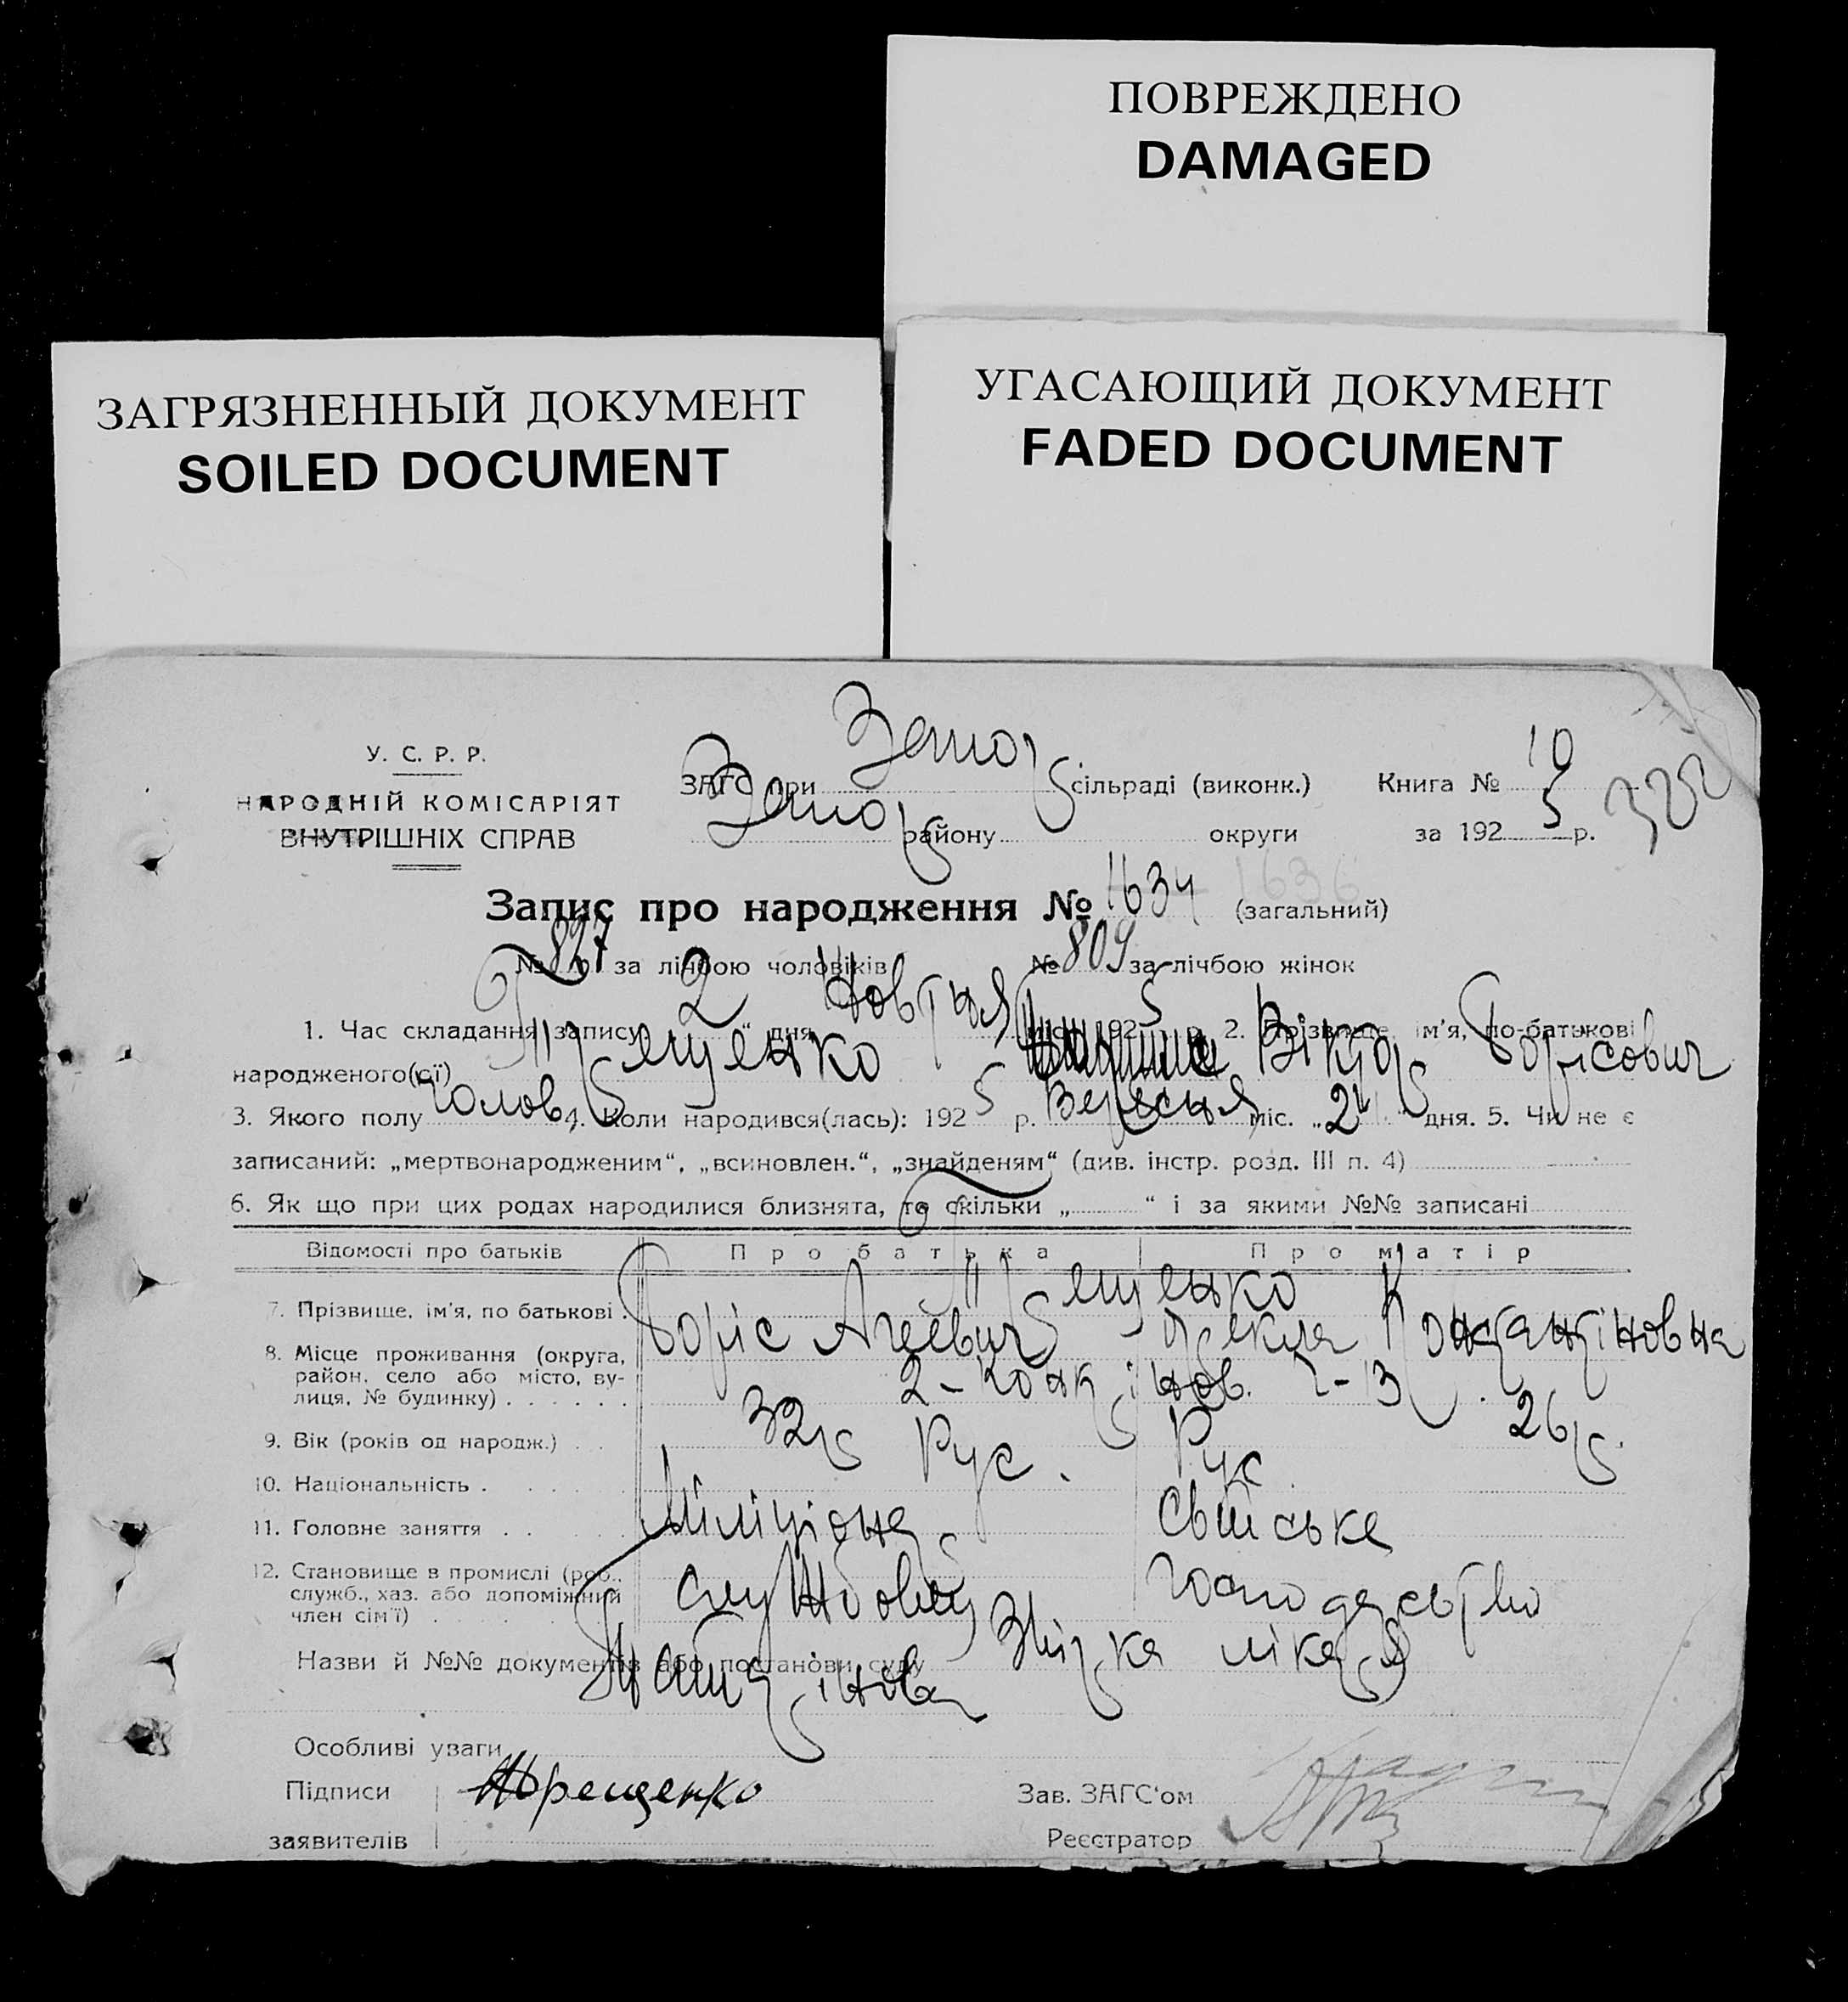 ПОВРЕЖДЕНО
DAMAGED
ЗАГРЯЗНЕННЫЙ ДОКУМЕНТ
SOILED DOCUMENT
УГАСАЮЩИЙ ДОКУМЕНТ
FADED DOCUMENT
У. С. Р. Р.
НАРОДНІЙ КОМІСАРІЯТ
ВНУТРІШНІХ СПРАВ
ЗАГС при Запор сільраді (виконк.) Книга № 10
Запор району округи за 1925 р.
Запис про народження № 1634 1636 (загальний)
№ 827 за лічбою чоловіків № 809 за лічбою жінок
1. Час складання запису 2 " дня Жовтня міс. 1925 р. 2. Прізвище, ім'я, по-батькові
народженого(ої) Трещенко Віктор Борісович
3. Якого полу Чолов 4. Коли народився(лась): 1925 р. Вересня міс. „ 21 " дня. 5. Чи не є
записаний: „мертвонародженим“, „всиновлен.“, „знайденям“ (див. інстр. розд. III п. 4)
6. Як що при цих родах народилися близнята, то скільки „ “ і за якими №№ записані
Відомості про батьків Про батька Про матір
7. Прізвище, ім'я, по батькові . Трещенко
Боріс Агеевич Фекла Константіновна
8. Місце проживання (округа, район, село або місто, вулиця, № будинку) . . . . . .
9. Вік (років од народж.) . . 32 р 26 р.
10. Національність . Рус. Рус
11. Головне заняття . . Міліціонер Свійське
12. Становище в промислі (роб., служб., хаз. або допоміжний член сім'ї) . Службовец господарство
Назви й №№ документів або постанови суду Звізка лікаря
Особливі уваги
Підписи Трещенко Зав. ЗАГС'ом
заявителів Реєстратор